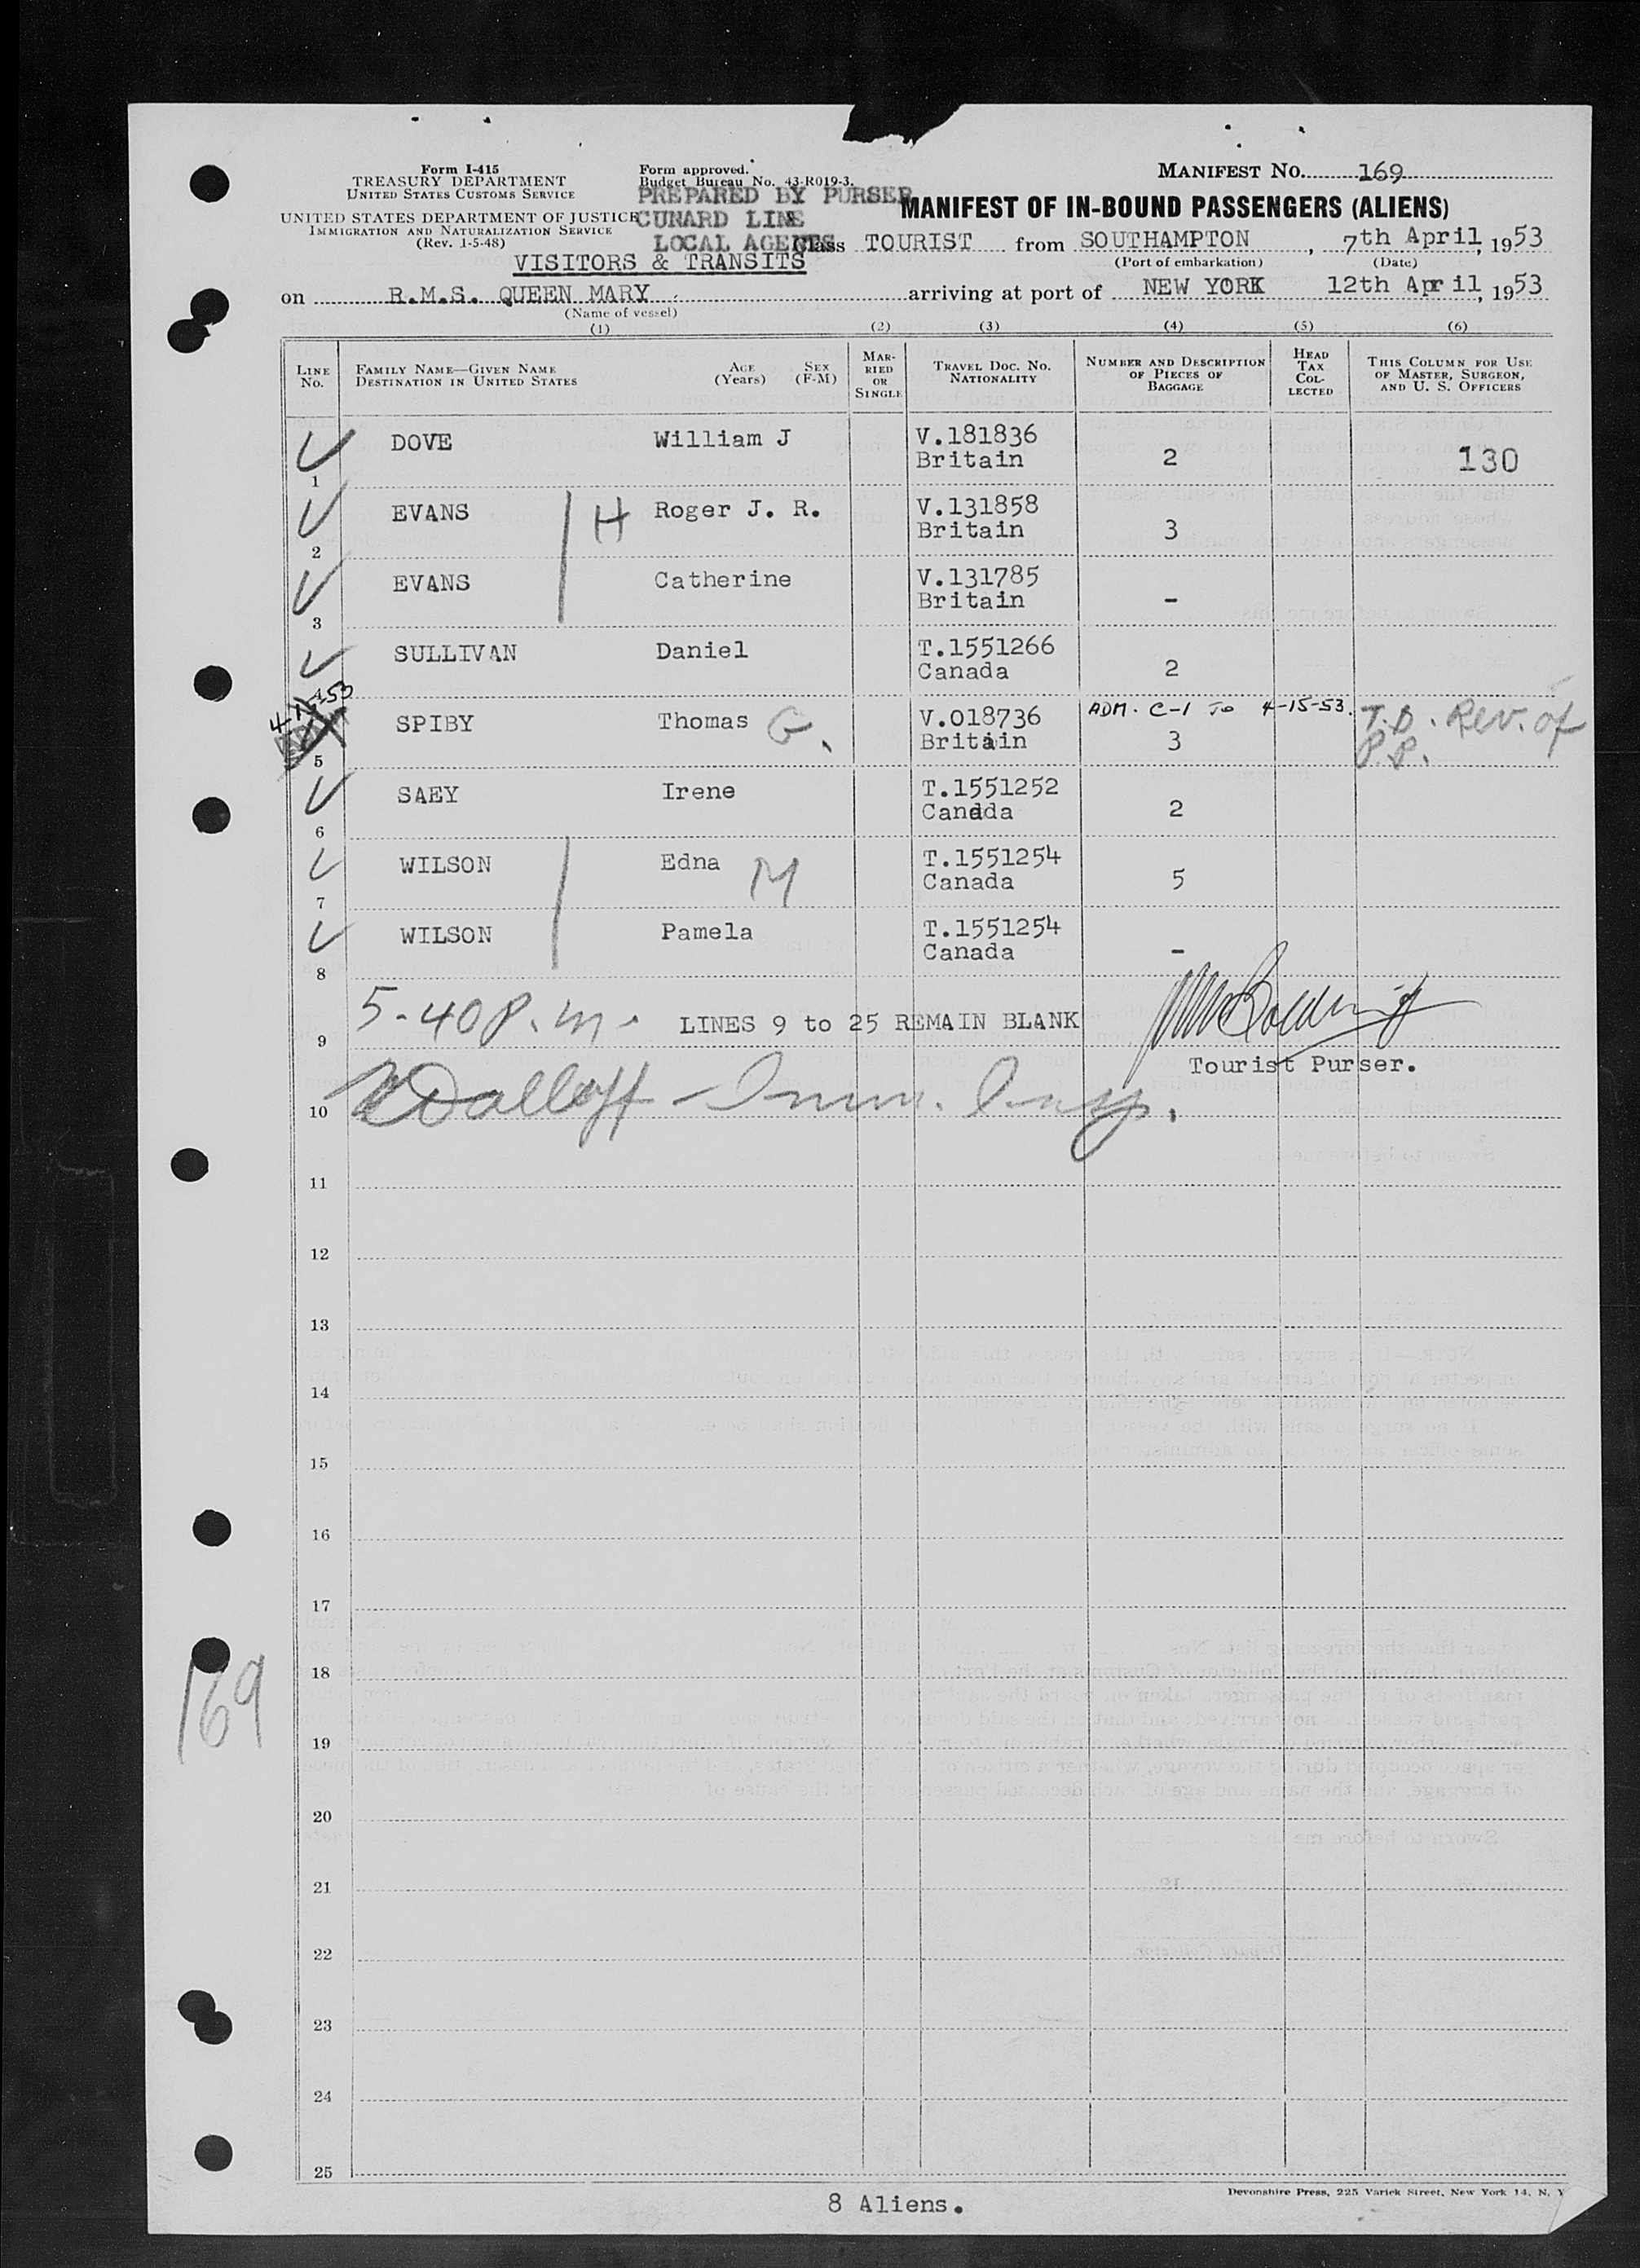 Form I-415
TREASURY DEPARTMENT
UNITED STATES CUSTOMS SERVICE
UNITED STATES DEPARTMENT OF JUSTICE
IMMIGRATION AND NATURALIZATION SERVICE
(Rev. 1-5-48)
Form approved.
Budget Bureau No. 43-R019-3.
PREPARED BY PURSER
CUNARD LINE
LOCAL AGENTS
MANIFEST NO. 169
MANIFEST OF IN-BOUND PASSENGERS (ALIENS)
Class TOURIST from SOUTHAMPTON, 7th April, 1953
(Port of embarkation) (Date)
VISITORS & TRANSITS
on R.M.S. QUEEN MARY arriving at port of NEW YORK 12th April, 1953
(Name of vessel)
(1) (2) (3) (4) (5) (6)
LINE NO.
FAMILY NAME—GIVEN NAME
DESTINATION IN UNITED STATES
AGE (Years)
SEX (F-M)
MARRIED OR SINGLE
TRAVEL DOC. NO.
NATIONALITY
NUMBER AND DESCRIPTION OF PIECES OF BAGGAGE
HEAD TAX COLLECTED
THIS COLUMN FOR USE OF MASTER, SURGEON, AND U. S. OFFICERS
1 DOVE William J V.181836 Britain 2 130
2 EVANS H Roger J. R. V.131858 Britain 3
3 EVANS Catherine V.131785 Britain -
4 SULLIVAN Daniel T.1551266 Canada 2
4-15-53
5 SPIBY Thomas G. V.018736 Britain ADM. C-1 To 4-15-53. 3 T.D. Rev. of P.P.
6 SAEY Irene T.1551252 Canada 2
7 WILSON Edna M T.1551254 Canada 5
8 WILSON Pamela T.1551254 Canada -
5-40 P.m.
9 LINES 9 to 25 REMAIN BLANK
Tourist Purser.
10 Imm. Insp.
11
12
13
14
15
16
17
169
18
19
20
21
22
23
24
25
8 Aliens.
Devonshire Press, 225 Varick Street, New York 14, N. Y